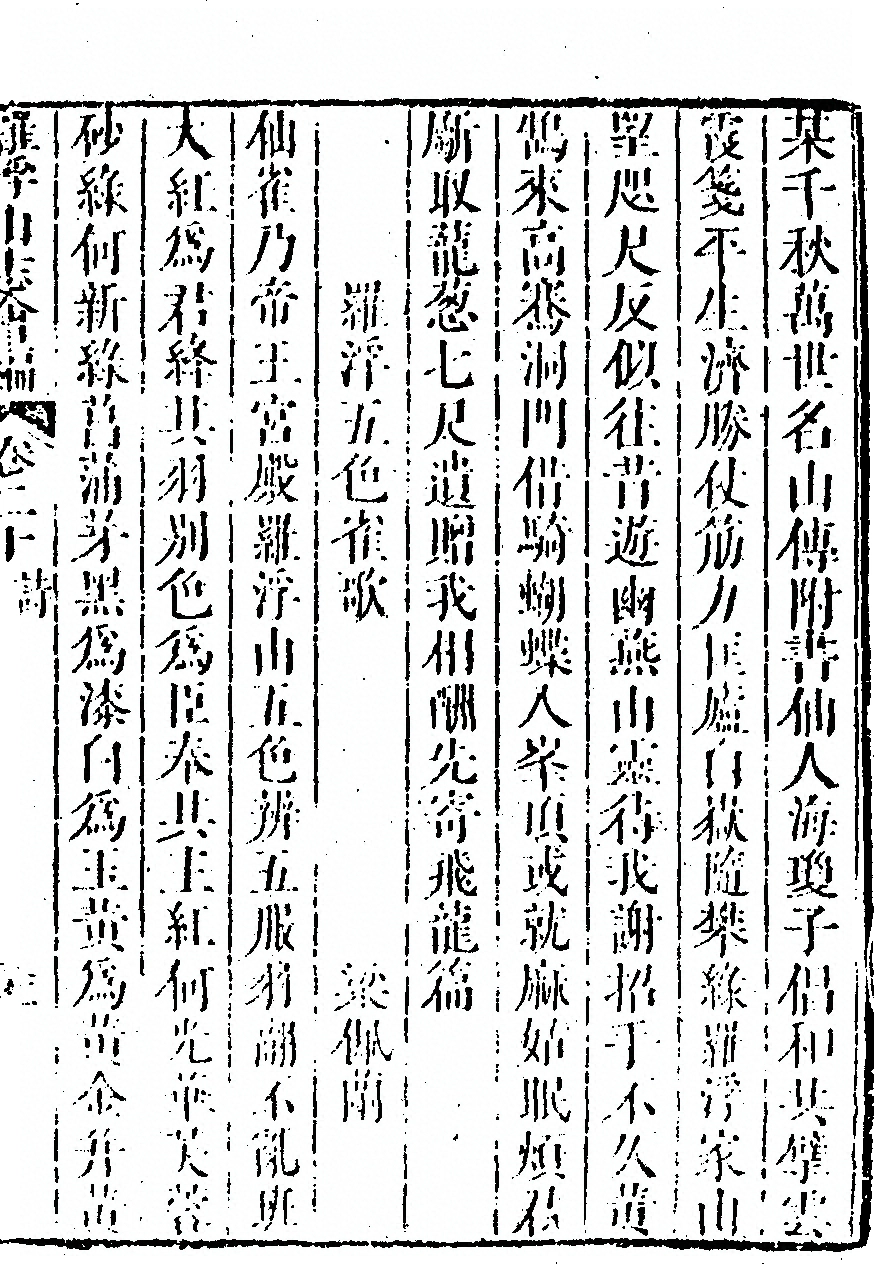 某千秋萬世名山傳附書仙人海瓊子倡和共擘雲
霞箋平生濟勝仗筋力匡廬白嶽隨攀緣羅浮家山
望咫尺反似往昔遊幽燕山靈待我謝招手不久黃
鵠來高騫洞門借騎蝴蝶入峯頂或就麻姑眠煩君
斸取龍葱七尺遺贈我相酬先寄飛龍篇
羅浮五色雀歌
梁佩蘭
仙雀乃帝王宮殿羅浮山五色辨五服羽翮不亂班
大紅爲君絳其羽別色爲臣奉其主紅何光華芙蓉
砂綠何新綠菖蒲芽黑爲漆白爲玉黃爲黃金并黃
羅浮山志會編
卷二十
詩